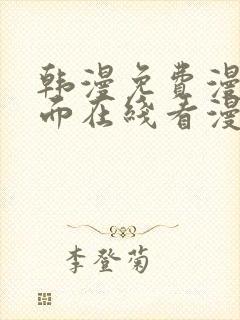 韩漫免费漫
而在线看漫
李登菊